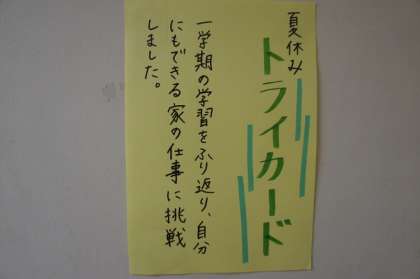 夏休み
トライカード
一学期の学習をふり返り、自分
にもできる家の仕事に挑戦
しました。